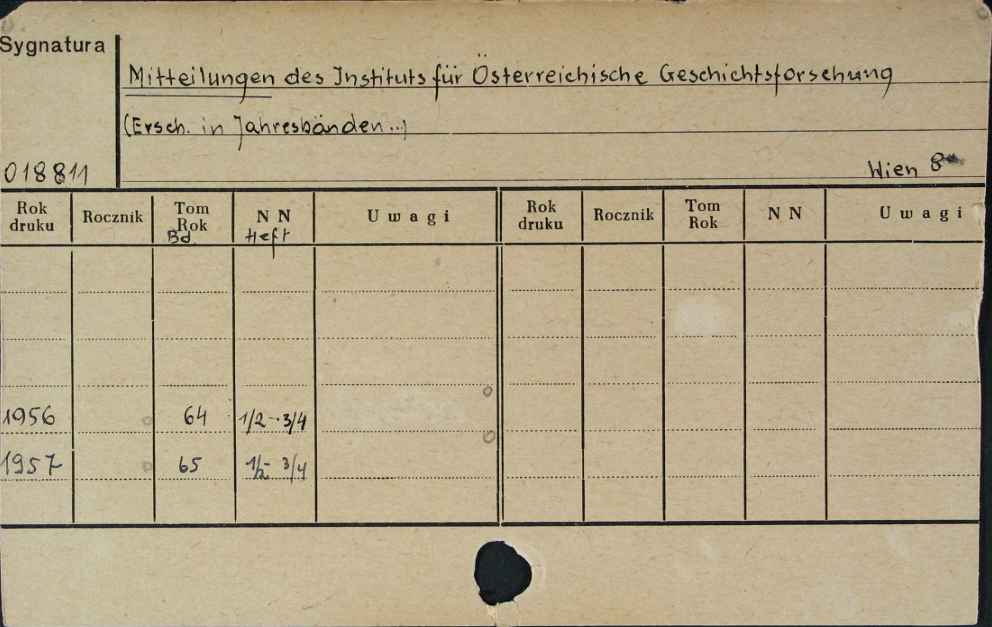 Sygnatura
Mitteilungen des Instituts für Österreichische Geschichtsforschung
(Ersch. in Jahresbänden...)
018811
Wien 8°
Rok druku Rocznik Tom Rok Bd NN Heft Uwagi Rok druku Rocznik Tom Rok NN Uwagi
1956 64 1/2 - 3/4
1957 65 1/2 - 3/4